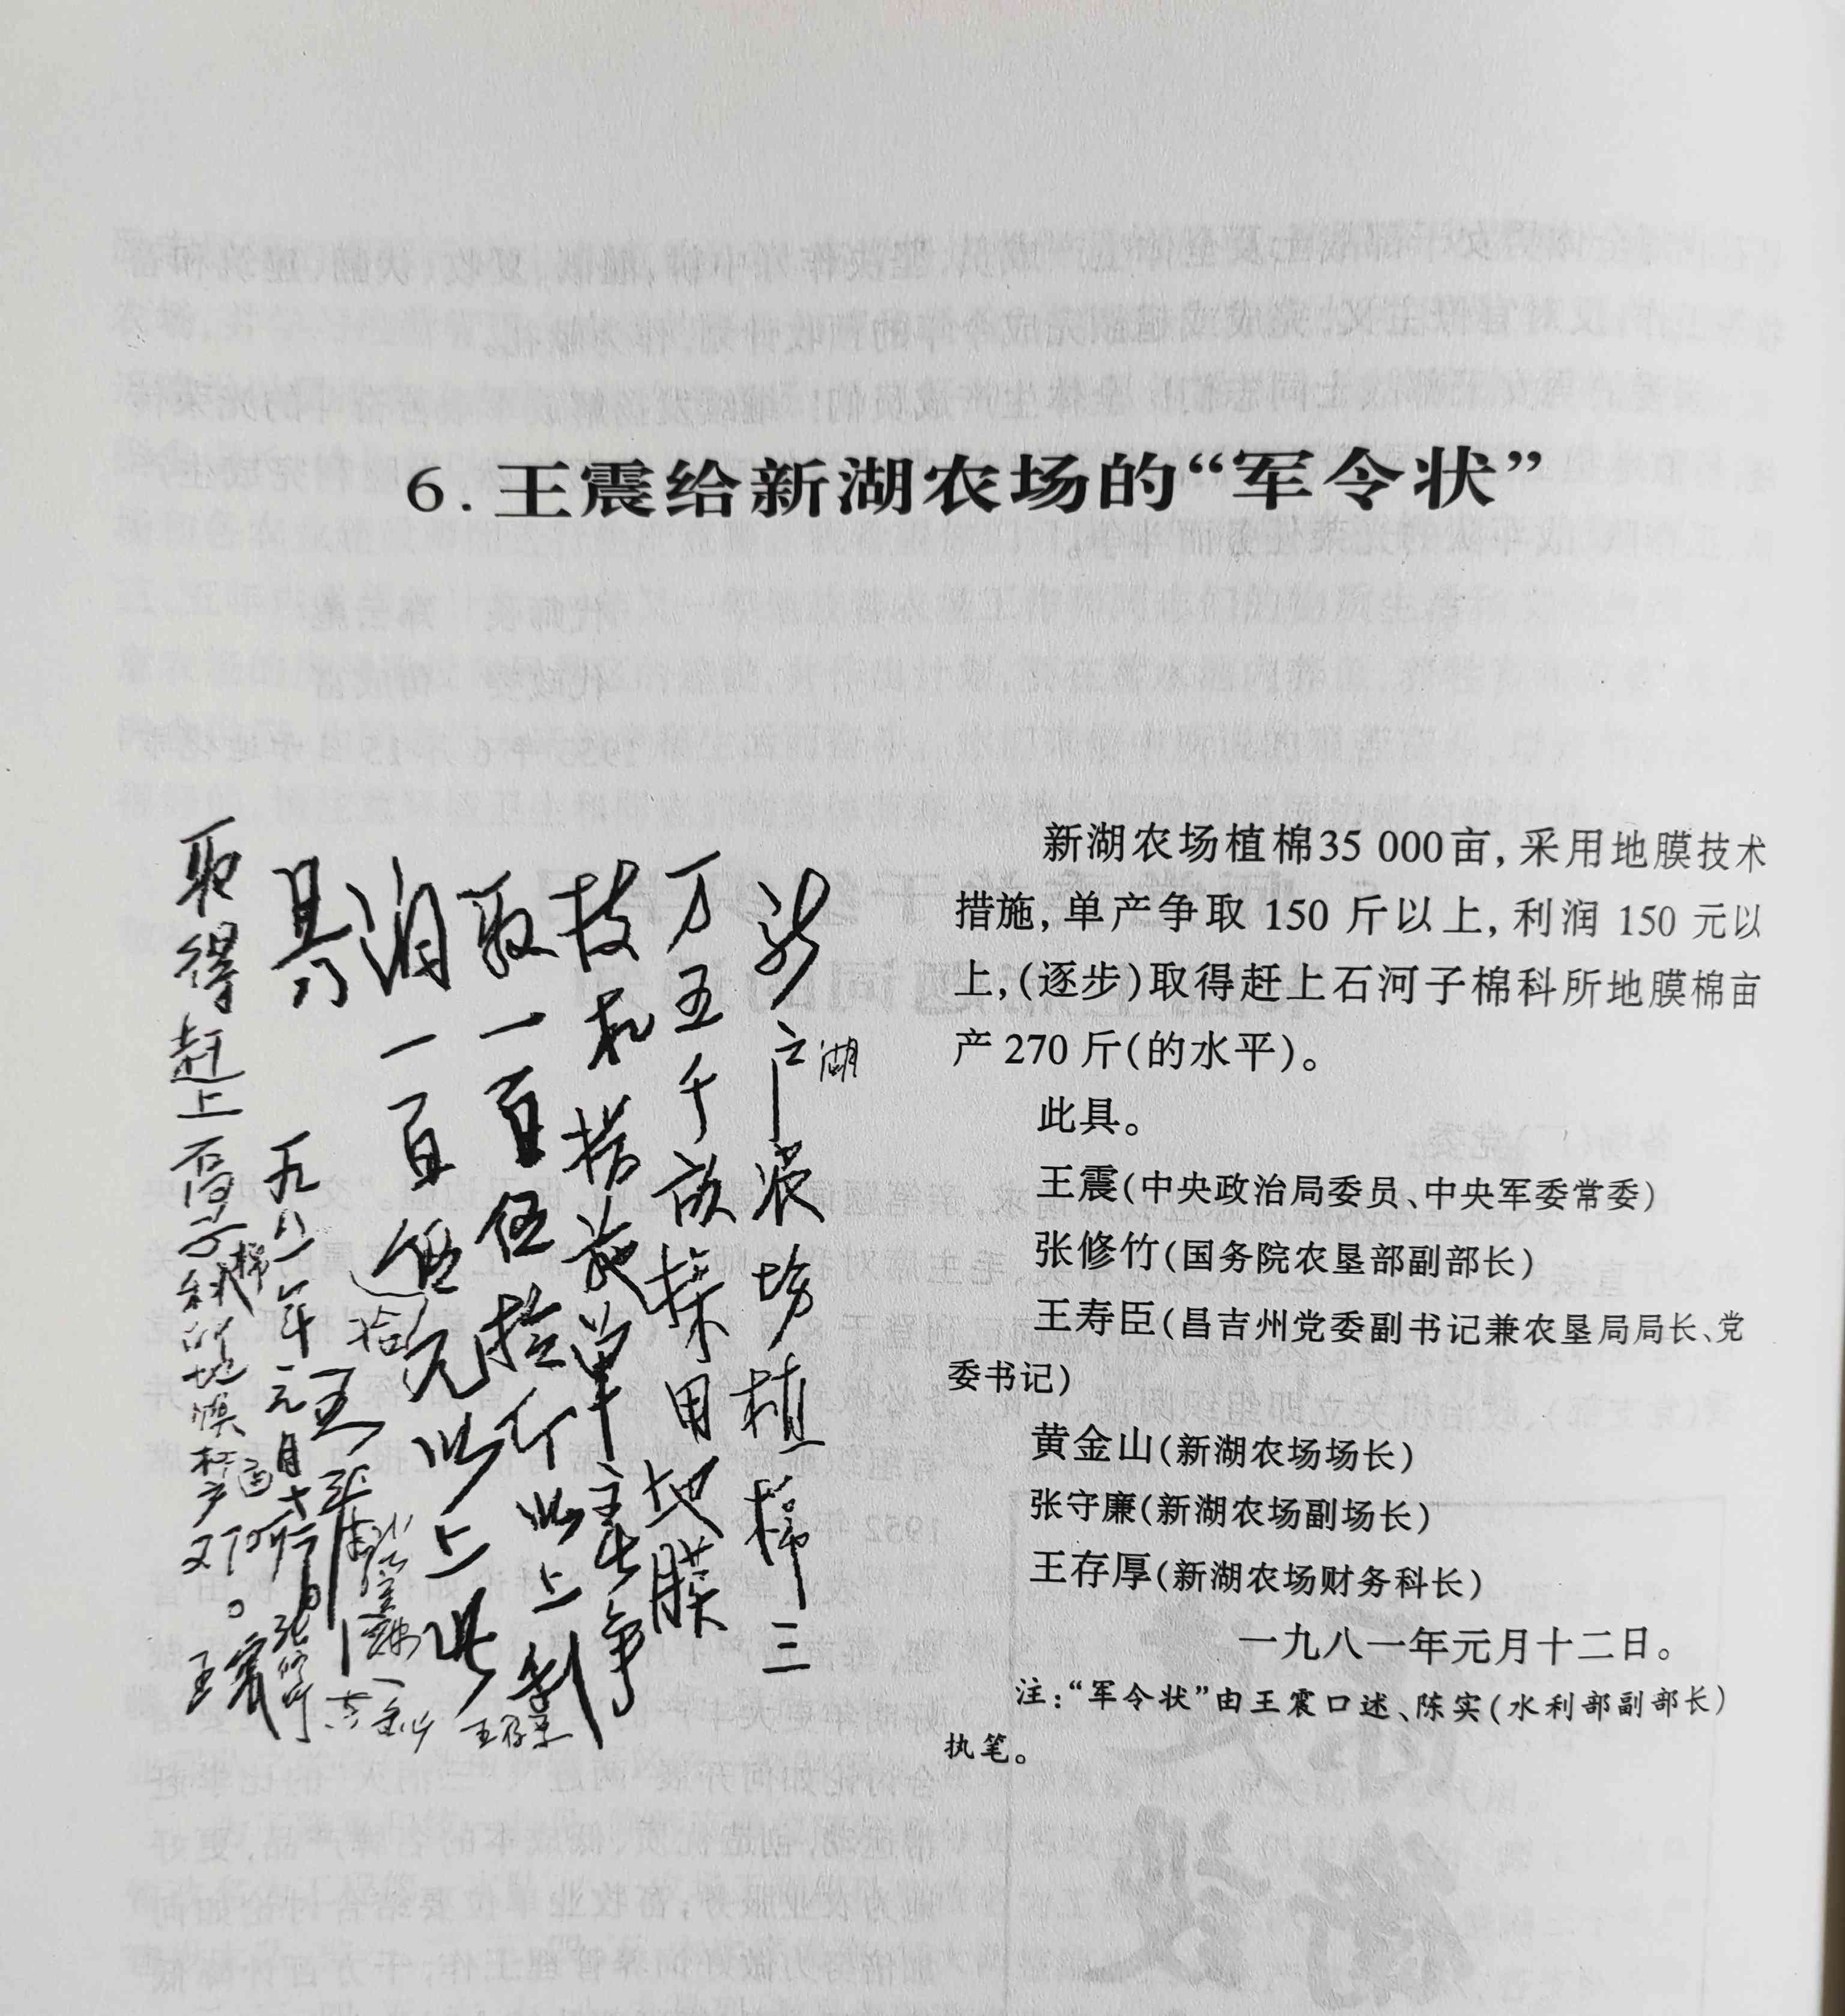 6.王震给新湖农场的“军令状”
新湖农场植棉35 000亩,采用地膜技术
措施,单产争取 150 斤以上,利润 150 元以
上,(逐步)取得赶上石河子棉科所地膜棉亩
产 270 斤(的水平)。
此具。
王震(中央政治局委员、中央军委常委)
张修竹(国务院农垦部副部长)
王寿臣(昌吉州党委副书记兼农垦局局长、党
委书记)
黄金山(新湖农场场长)
张守廉(新湖农场副场长)
王存厚(新湖农场财务科长)
一九八一年元月十二日。
注:“军令状”由王震口述、陈实(水利部副部长)
执笔。
湖
农场植棉三
万五千亩采用地膜
技术措施单产争
取一百伍拾斤以上利
润一百伍拾元以上此
具
取得赶上石河子棉科所地膜棉亩产
王震
张修竹
黄金山
王存厚